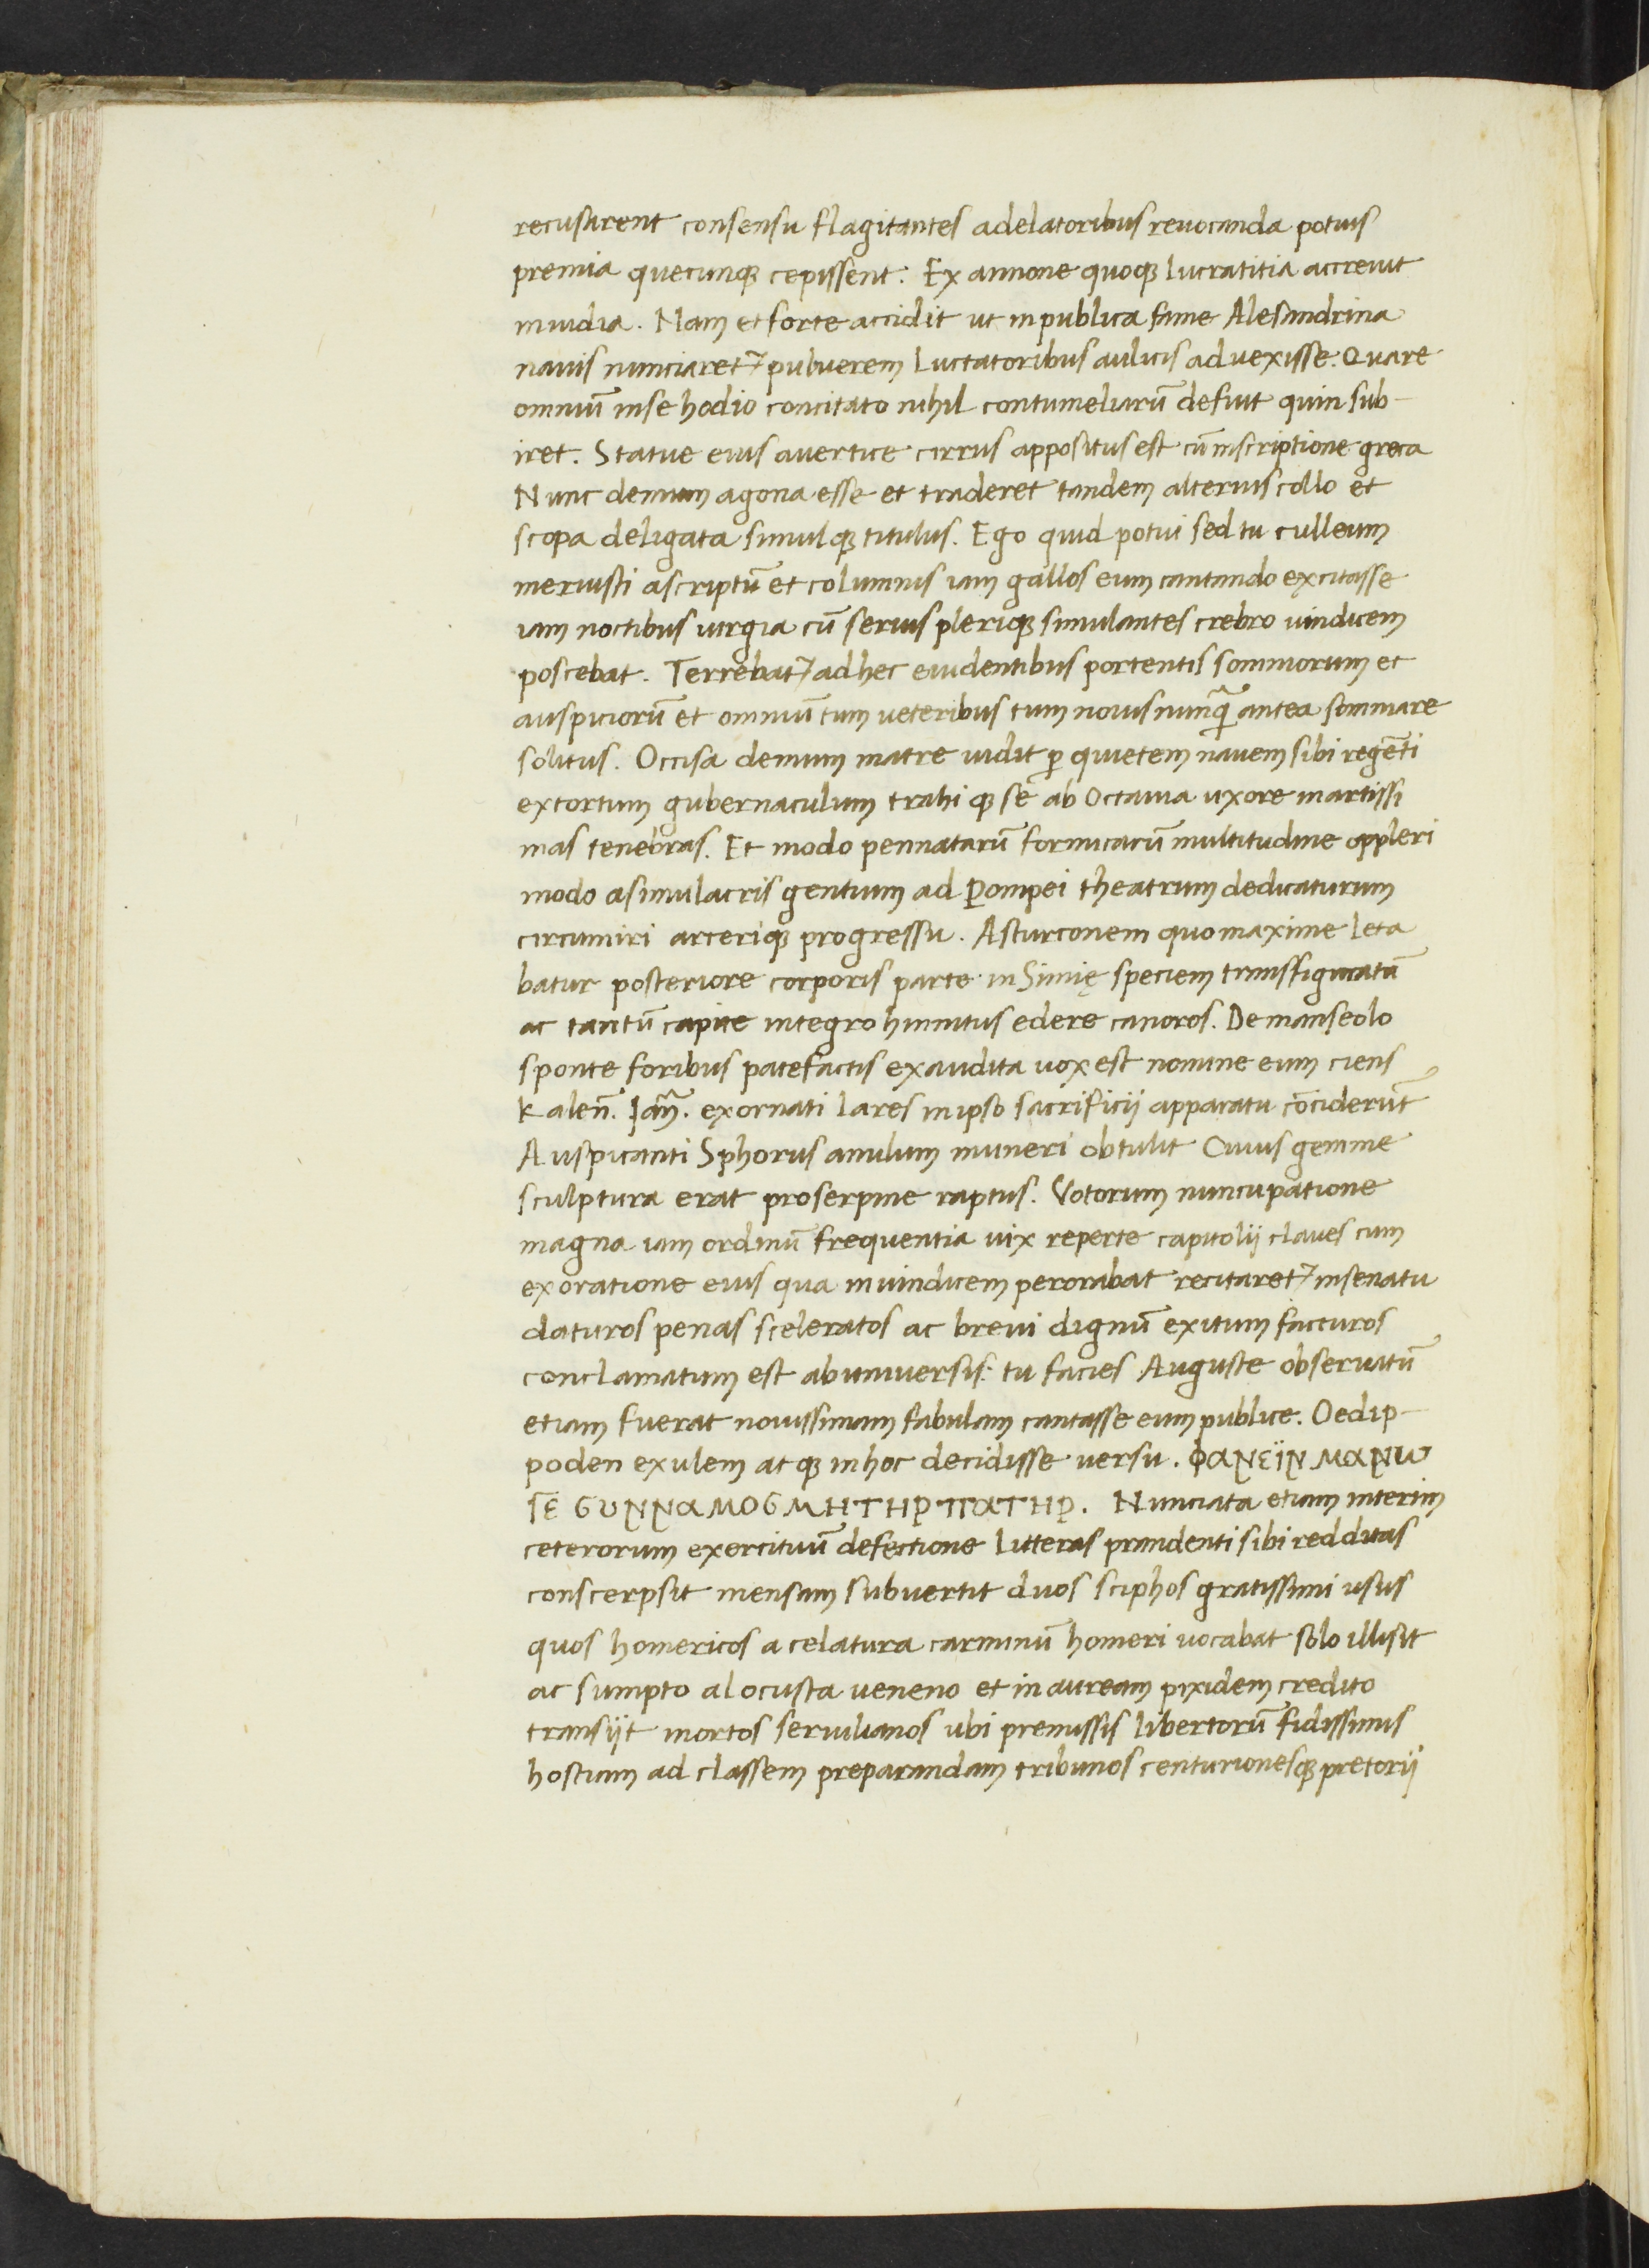 recusarent consensu flagitantes adelatoribus reuocanda potius
premia quecunq; cepissent: Ex annone quoq; lucratitia accreuit
inuidia. Nam et forte accidit ut inpublica fame Alesandrina
nauis nunciaret᷑ puluerem Luctatoribus aulicis aduexisse. Quare
omniū inse hodio concitato nihil contumeliarū defuit quin sub-
iret. Statue eius auertice cirrus appositus est cū inscriptione greca
Nunc demum agona esse et traderet tandem alterius collo et
scopa deligata simulq; titulus. Ego quid potui sed tu culleum
meruisti ascriptū et columnis iam gallos eum cantando excitasse
iam noctibus iurgia cū seruis pleriq; simulantes crebro uindicem
poscebat. Terrebat᷑ adhec euidentibus portentis somniorum et
auspiciorū et omniū tum ueteribus tum nouis nunq̄ antea somniare
solitus. Occisa demum matre uidit ꝑ quietem nauem sibi regēti
extortum gubernaculum trahi q; se ab Octauia uxore inartissi
mas tenebras. Et modo pennatarū formicarū multitudine oppleri
modo asimulacris gentium ad Pompei theatrum dedicaturum
circumiri arceriq; progressu. Asturconem quo maxime leta
batur posteriore corporis parte in Simię speciem transfiguratū
ac tantū capite integro hinnitus edere canoros. De manseolo
sponte foribus patefactis exaudita uox est nomine eum ciens
Kaleñ. Iañ. exornati lares inipso sacrificij apparatu cōciderūt
Auspicanti Sphorus anulum muneri obtulit Cuius gemme
sculptura erat proserpine raptus. Votorum nuncupatione
magna iam ordinū frequentia uix reperte capitolij claues cum
exoratione eius qua inuindicem perorabat recitaret᷑ insenatu
daturos penas sceleratos ac breui dignū exitum facturos
conclamatum est abuniuersis: tu facies Auguste obseruatū
etiam fuerat nouissimam fabulam cantasse eum publice. Oedip-
poden exulem atq; inhoc decidisse uersu. ΦΑΝΕΪΝ ΜΑΝω
ΓΕ ϬΥΝΝΑΜΟϬΜΗΤΗΡ ΠΑΤΗΡ. Nunciata etiam interim
ceterorum exercituū defectione litteras prandenti sibi redditas
conscerpsit mensam subuertit duos sciphos gratissimi usus
quos homericos a celatura carminū homeri uocabat solo illisit
ac sumpto alocusta ueneno et in auream pixidem credito
transijt inortos seruilianos ubi premissis libertorū fidissimis
hostiam ad classem preparandam tribunos centurionesq; pretorij